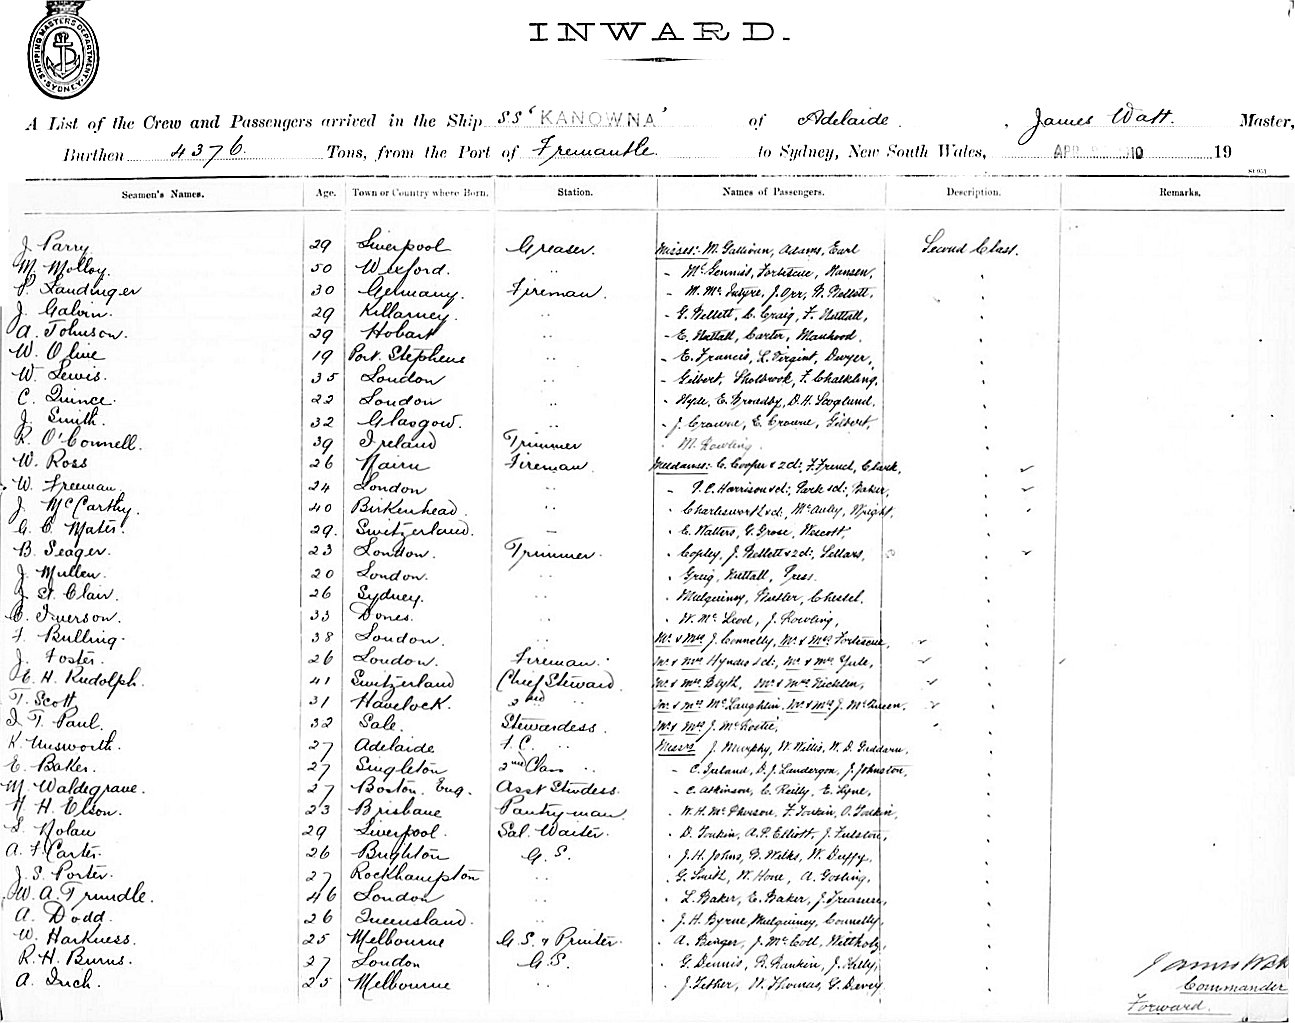 SHIPPING MASTERS DEPARTMENT SYDNEY
INWARD.
A List of the Crew and Passengers arrived in the Ship SS 'KANOWNA' of Adelaide, James Watt. Master,
Burthen 4376 Tons, from the Port of Fremantle to Sydney, New South Wales, APR 1910 19
Seamen's Names. Age. Town or Country where Born. Station. Names of Passengers. Description. Remarks.
J. Parry 29 Liverpool Greaser. Misses:- M. Gallivan, Adams, Earl Second Class.
M. Molloy. 50 Wexford. " McGennis, Fortescue, Hansen,
P. Landinger 30 Germany. Fireman. " M. McIntyre, J. Orr, Kellett,
J. Galvin. 29 Killarney. " " G. Kellett, C. Craig, F. Nuttall,
A. Johnson. 29 Hobart " " E. Nuttall, Carter, Manhood,
W. Olive 19 Port. Stephens " " E. Francis, L. Virgint, Dwyer,
W. Lewis. 35 London " " Gilbert, Sholbrook, F. Chalkling,
C. Quince. 22 London " " Hyde, E. Broadby, D. H. Scoglund,
J. Smith. 32 Glasgow. " " J. Crowne, E. Crowne, Gilbert,
R. O'Connell. 39 Ireland Trimmer " M. Rowling.
W. Ross 26 Nairn Fireman. Mesdames:- C. Cooper & 2cd:, F. French, Clark,
W. Freeman. 24 London " " T. C. Harrison & cd:, Park & cd:, Baker,
J. McCarthy. 40 Birkenhead. " " Charlesworth & cd:, McAuley, Wright,
G. C. Mater. 29. Switzerland. — " C. Walters, G. Grose, Wescott,
B. Seager. 23 London. Trimmer. " Copley, J. Kellett & 2cd:, Sellars,
J. Mullen. 20 London. " " Greig, Nuttall, Press.
J. St. Clair. 26 Sydney. " " Mulquiney, Chessel.
C. Iverson. 33 " " W. McLeod, J. Rowling,
F. Bulling. 38 London. " Mr. & Mrs J. Connelly, Mr. & Mrs Fortescue,
J. Foster. 26 London. Fireman. Mr. & Mrs Hyndes & cd:, Mr. & Mrs Yule,
E. H. Rudolph. 41 Switzerland Chief Steward. Mr. & Mrs Blyth, Mr. & Mrs Nicklen,
T. Scott 31 Havelock. 2nd " Mr. & Mrs McLaughlin, Mr. & Mrs J. McQueen,
I. T. Paul. 32 Sale. Stewardess. Mr. & Mrs J. McRostie,
K. Unsworth. 27 Adelaide F.C. " Messrs J. Murphy, W. Willis, W. D. Gaddarn,
E. Baker. 27 Singleton 2nd Class " " C. Ireland, D. J. Landergon, J. Johnston,
M. Waldegrave. 27 Boston. Eng. Asst Stwdess. " C. Atkinson, C. Reilly, E. Lyne,
H. H. Elson. 23 Brisbane Pantryman. " W. H. McPherson, F. Tonkin, O. Tonkin,
S. Nolan 29 Liverpool. Sal. Waiter. " D. Tonkin, A. P. Elliott, J. Fulston,
A. F. Carter. 26 Brighton G.S. " J. H. Johns, G. Wilks, W. Duffy,
J. S. Porter. 27 Rockhampton " " G. Smith, W. Hone, A. Gosling,
W. A. Trundle. 46 London " " L. Baker, E. Baker, J. Treanen,
A. Dodd. 26 Queensland. " " J. H. Byrne, Mulquiney, Connelly,
W. Harkness. 25 Melbourne G.S. & Printer. " A. Binger, J. McColl, Wittholz,
R. H. Burns. 27 London G.S. " G. Dennis, R. Rankin, J. Kelly,
A. Inch. 25 Melbourne " " J. Father, W. Thomas, G. Davey
James Watt
Commander
Forward.